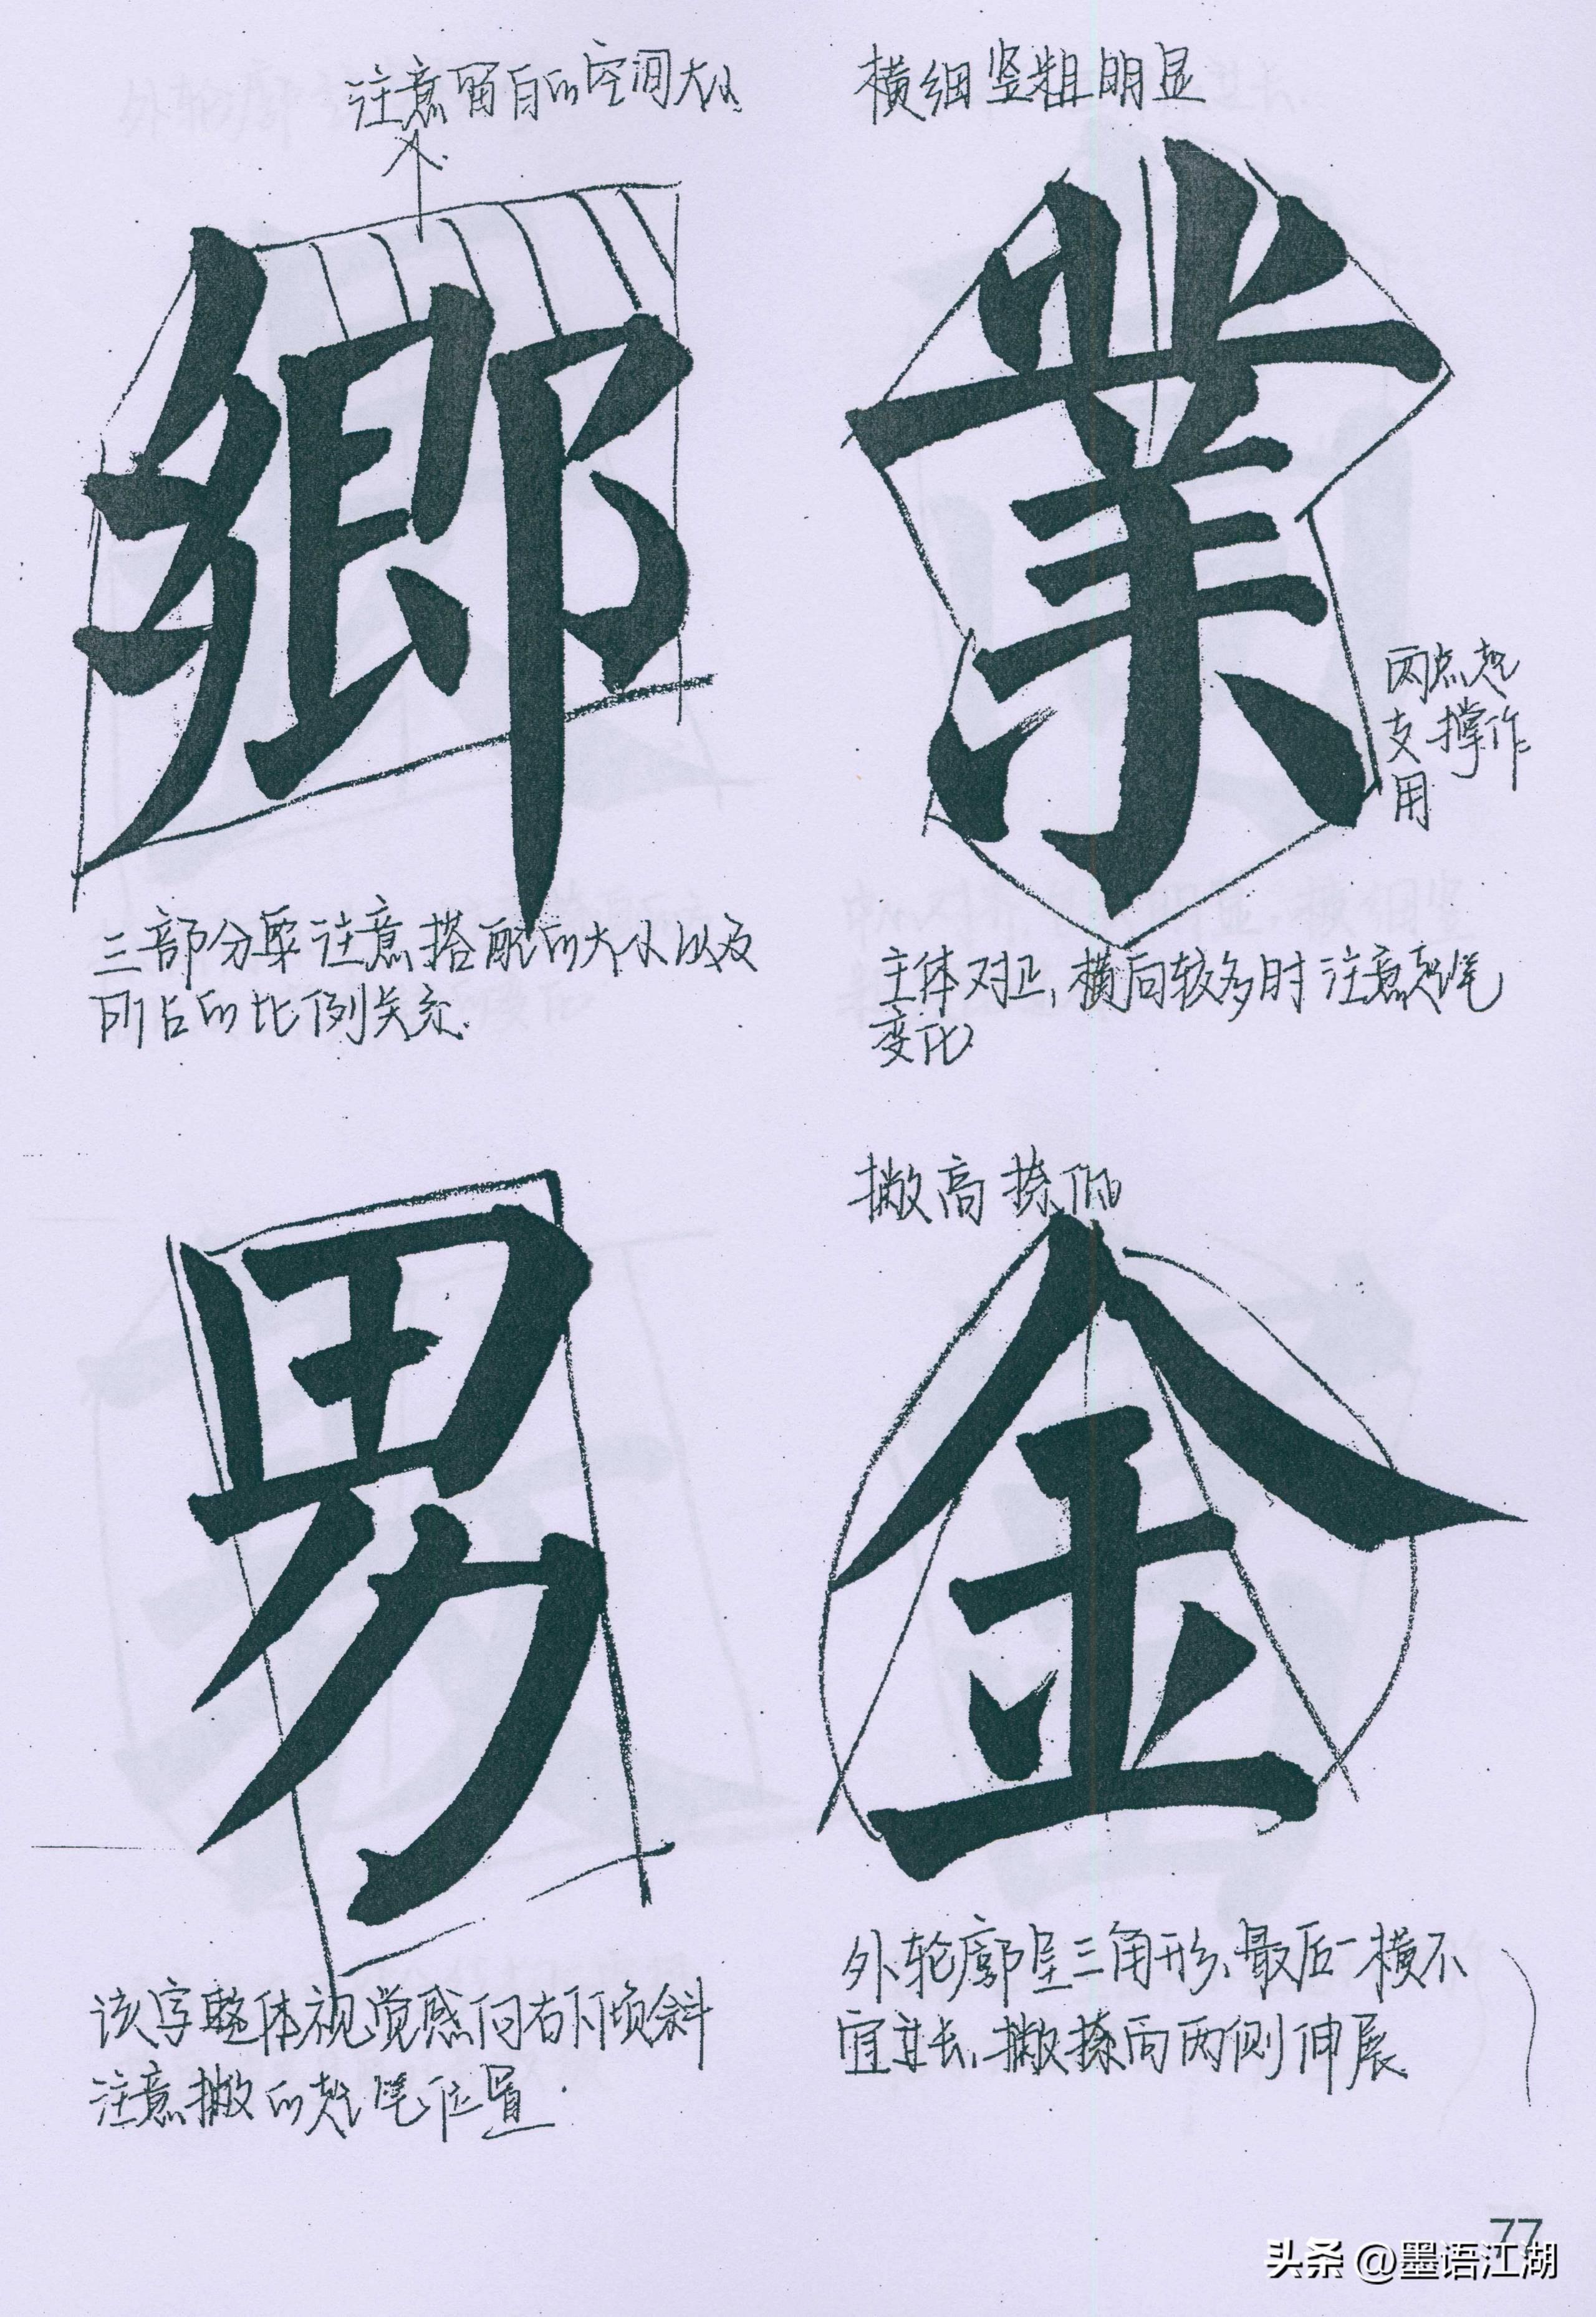 注意留白的空间大小
鄉
三部分要注意搭配的大小以及
所占的比例关系.
横细竖粗明显
業
两点起
支撑作
用
主体对正,横向较多时注意起笔
变化
男
该字整体视觉感向右下倾斜
注意撇的起笔位置.
撇高捺低
金
外轮廓呈三角形,最后一横不
宜过长,撇捺向两侧伸展
77
头条 @墨语江湖